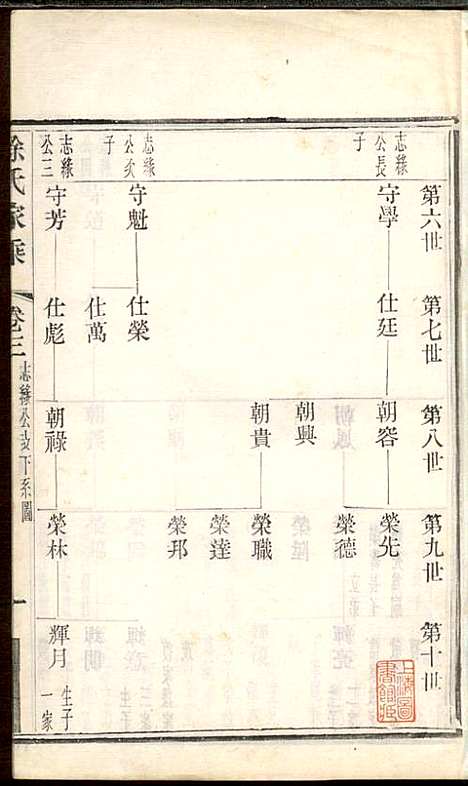 第六世
第七世
第八世
第九世
第十世
志緣公長子
守學
仕廷
朝容
榮先
榮德
朝興
朝貴
榮職
榮達
榮邦
志緣公次子
守魁
仕榮
仕萬
志緣公三
守芳
仕彪
朝祿
榮林
輝月
生子一家
徐氏家乘
卷三
志緣公支下系圖
一
上海圖書館藏